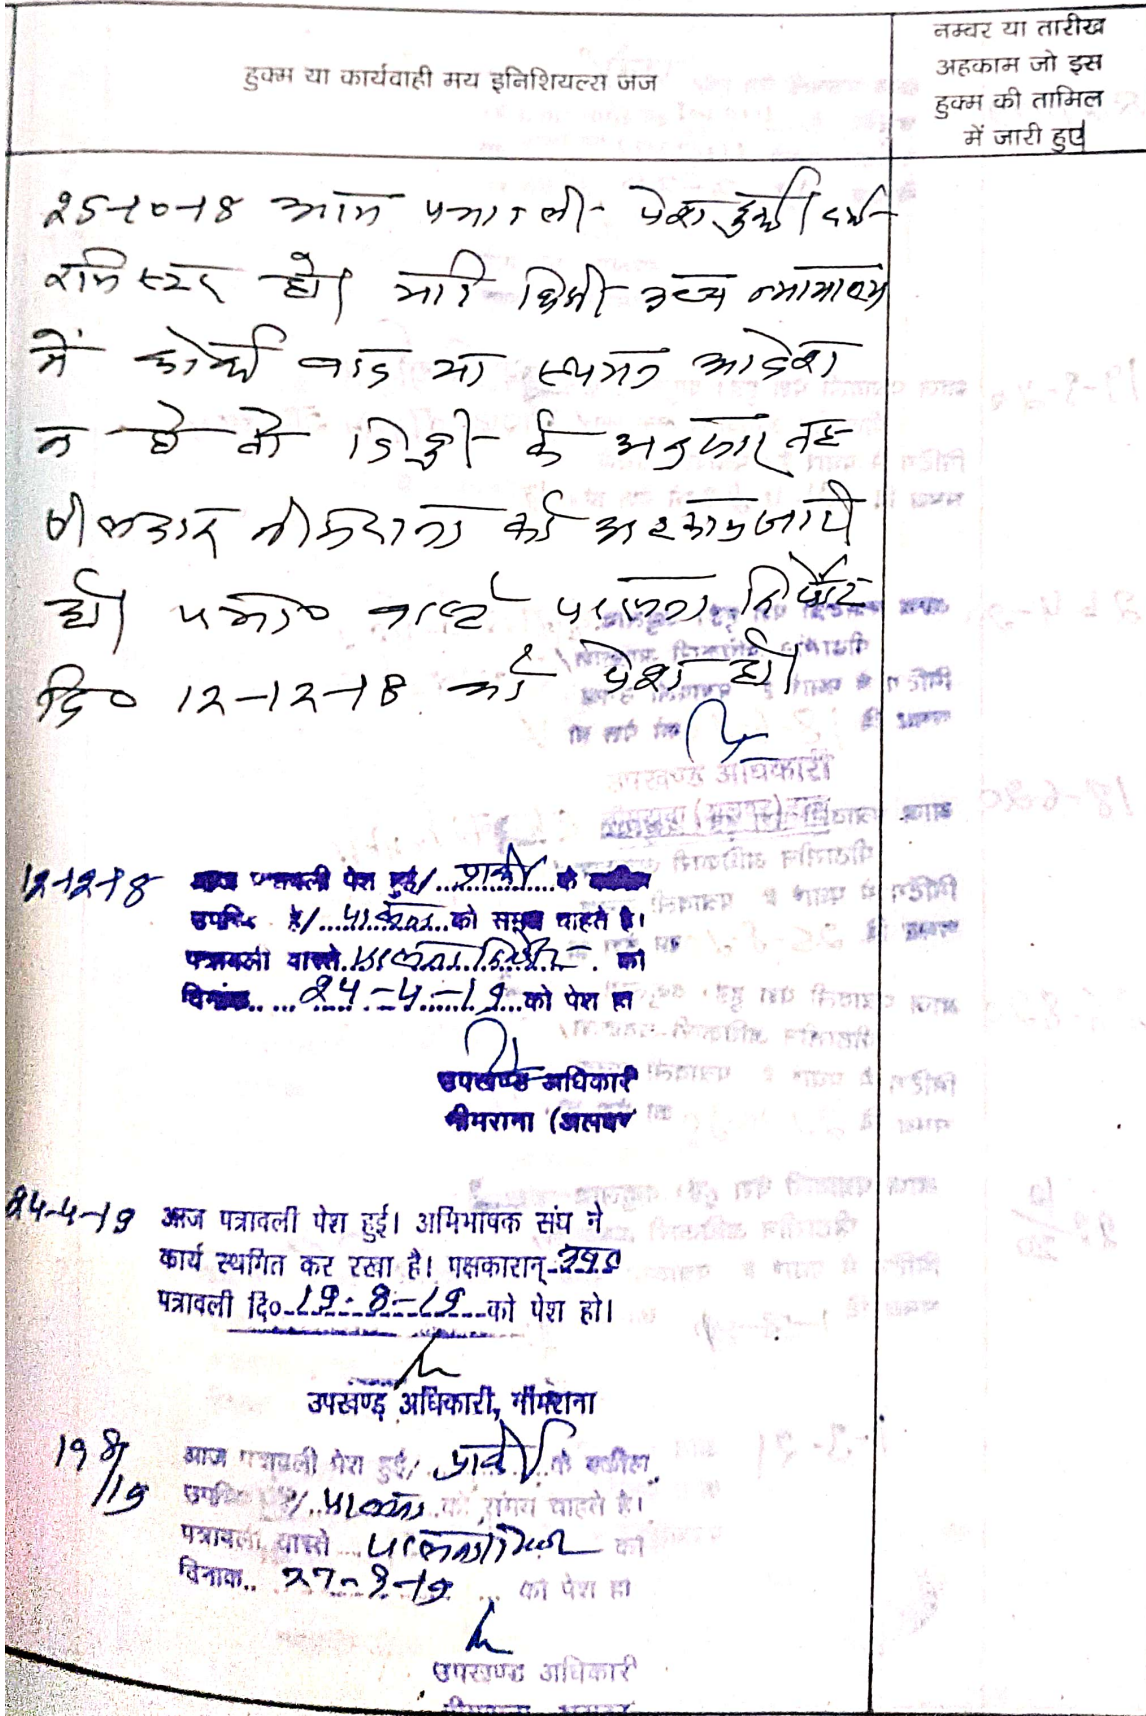 हुक्म या कार्यवाही मय इनिशियल्स जज
नम्बर या तारीख
अहकाम जो इस
हुक्म की तामिल
में जारी हुए
25-10-18 आज पत्रावली पेश हुयी। दर्ज
रजिस्टर हो। यदि किसी उच्च न्यायालय
में कोई वाद या स्थगन आदेश
न हो तो डिक्री के अनुसार तह
सीलदार नीमराना को अहकाम जारी
हो। पत्रा० वास्ते पालना रिपोर्ट
दि० 12-12-18 को पेश हो।
उपखण्ड अधिकारी
12-12-18 आज पत्रावली पेश हुई/ प्रार्थी के वकील
उपस्थित है/ को समय चाहते है।
पत्रावली वास्ते पालना रिपोर्ट को
दिनांक 24-4-19 को पेश हो
उपखण्ड अधिकारी
नीमराना (अलवर
24-4-19 आज पत्रावली पेश हुई। अभिभाषक संघ ने
कार्य स्थगित कर रखा है। पक्षकारान्
पत्रावली दि० 19-8-19 को पेश हो।
उपखण्ड अधिकारी, नीमराना
19 8/19 आज पत्रावली पेश हुई/ प्रार्थी के वकील
उपस्थित है/ को समय चाहते है।
पत्रावली वास्ते पालना रिपोर्ट को
दिनांक 27-9-19 को पेश हो
उपखण्ड अधिकारी